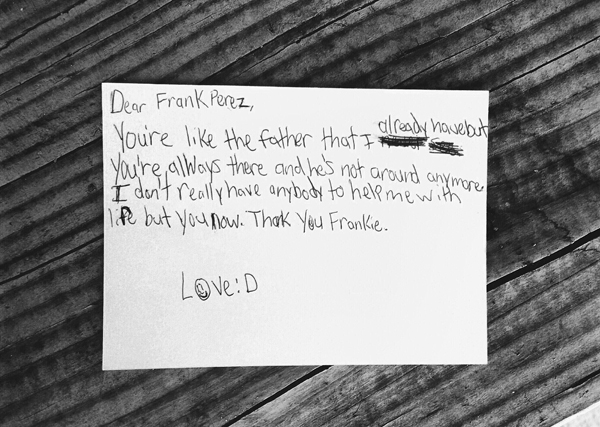 Dear Frank Perez,
You're like the father that I already have but
You're allways there and he's not around anymore
I don't really have anybody to help me with
life but you now. Thank You Frankie.
Love :D